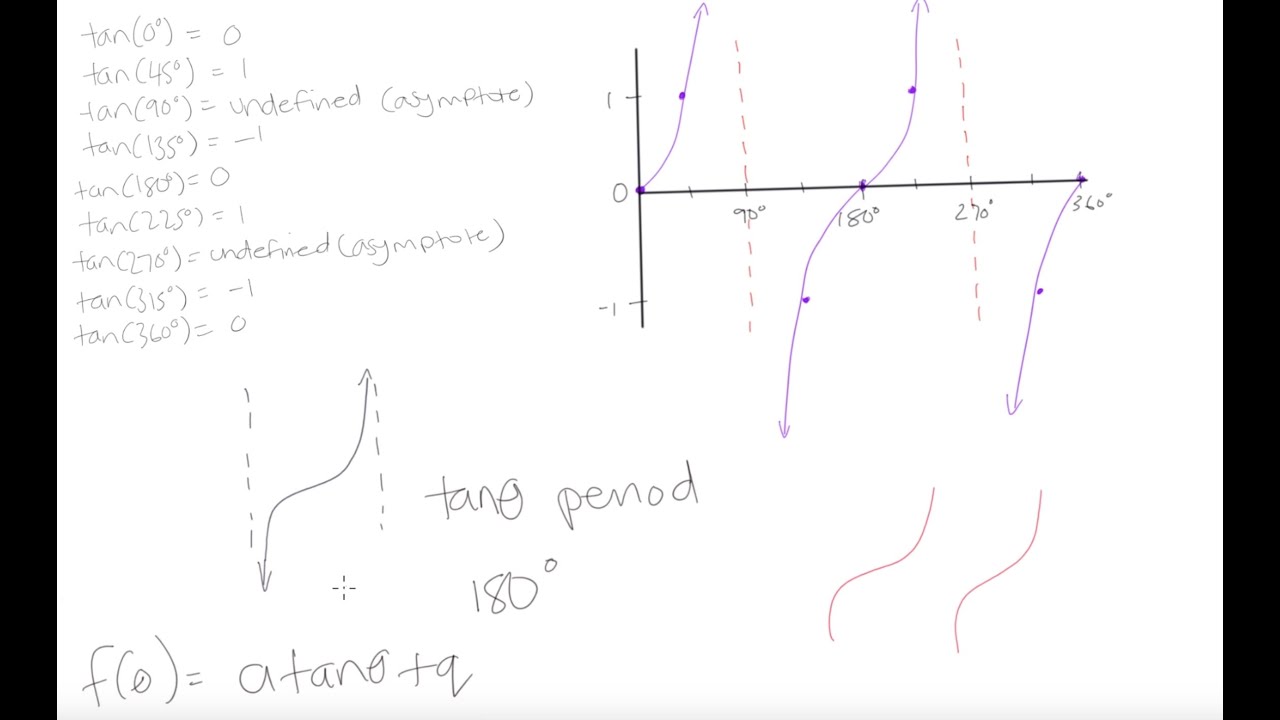 tan(0°) = 0
tan(45°) = 1
tan(90°) = undefined (asymptote)
tan(135°) = -1
tan(180°) = 0
tan(225°) = 1
tan(270°) = undefined (asymptote)
tan(315°) = -1
tan(360°) = 0
1
0
-1
90°
180°
270°
360°
tanθ period
180°
f(θ) = a tanθ + q